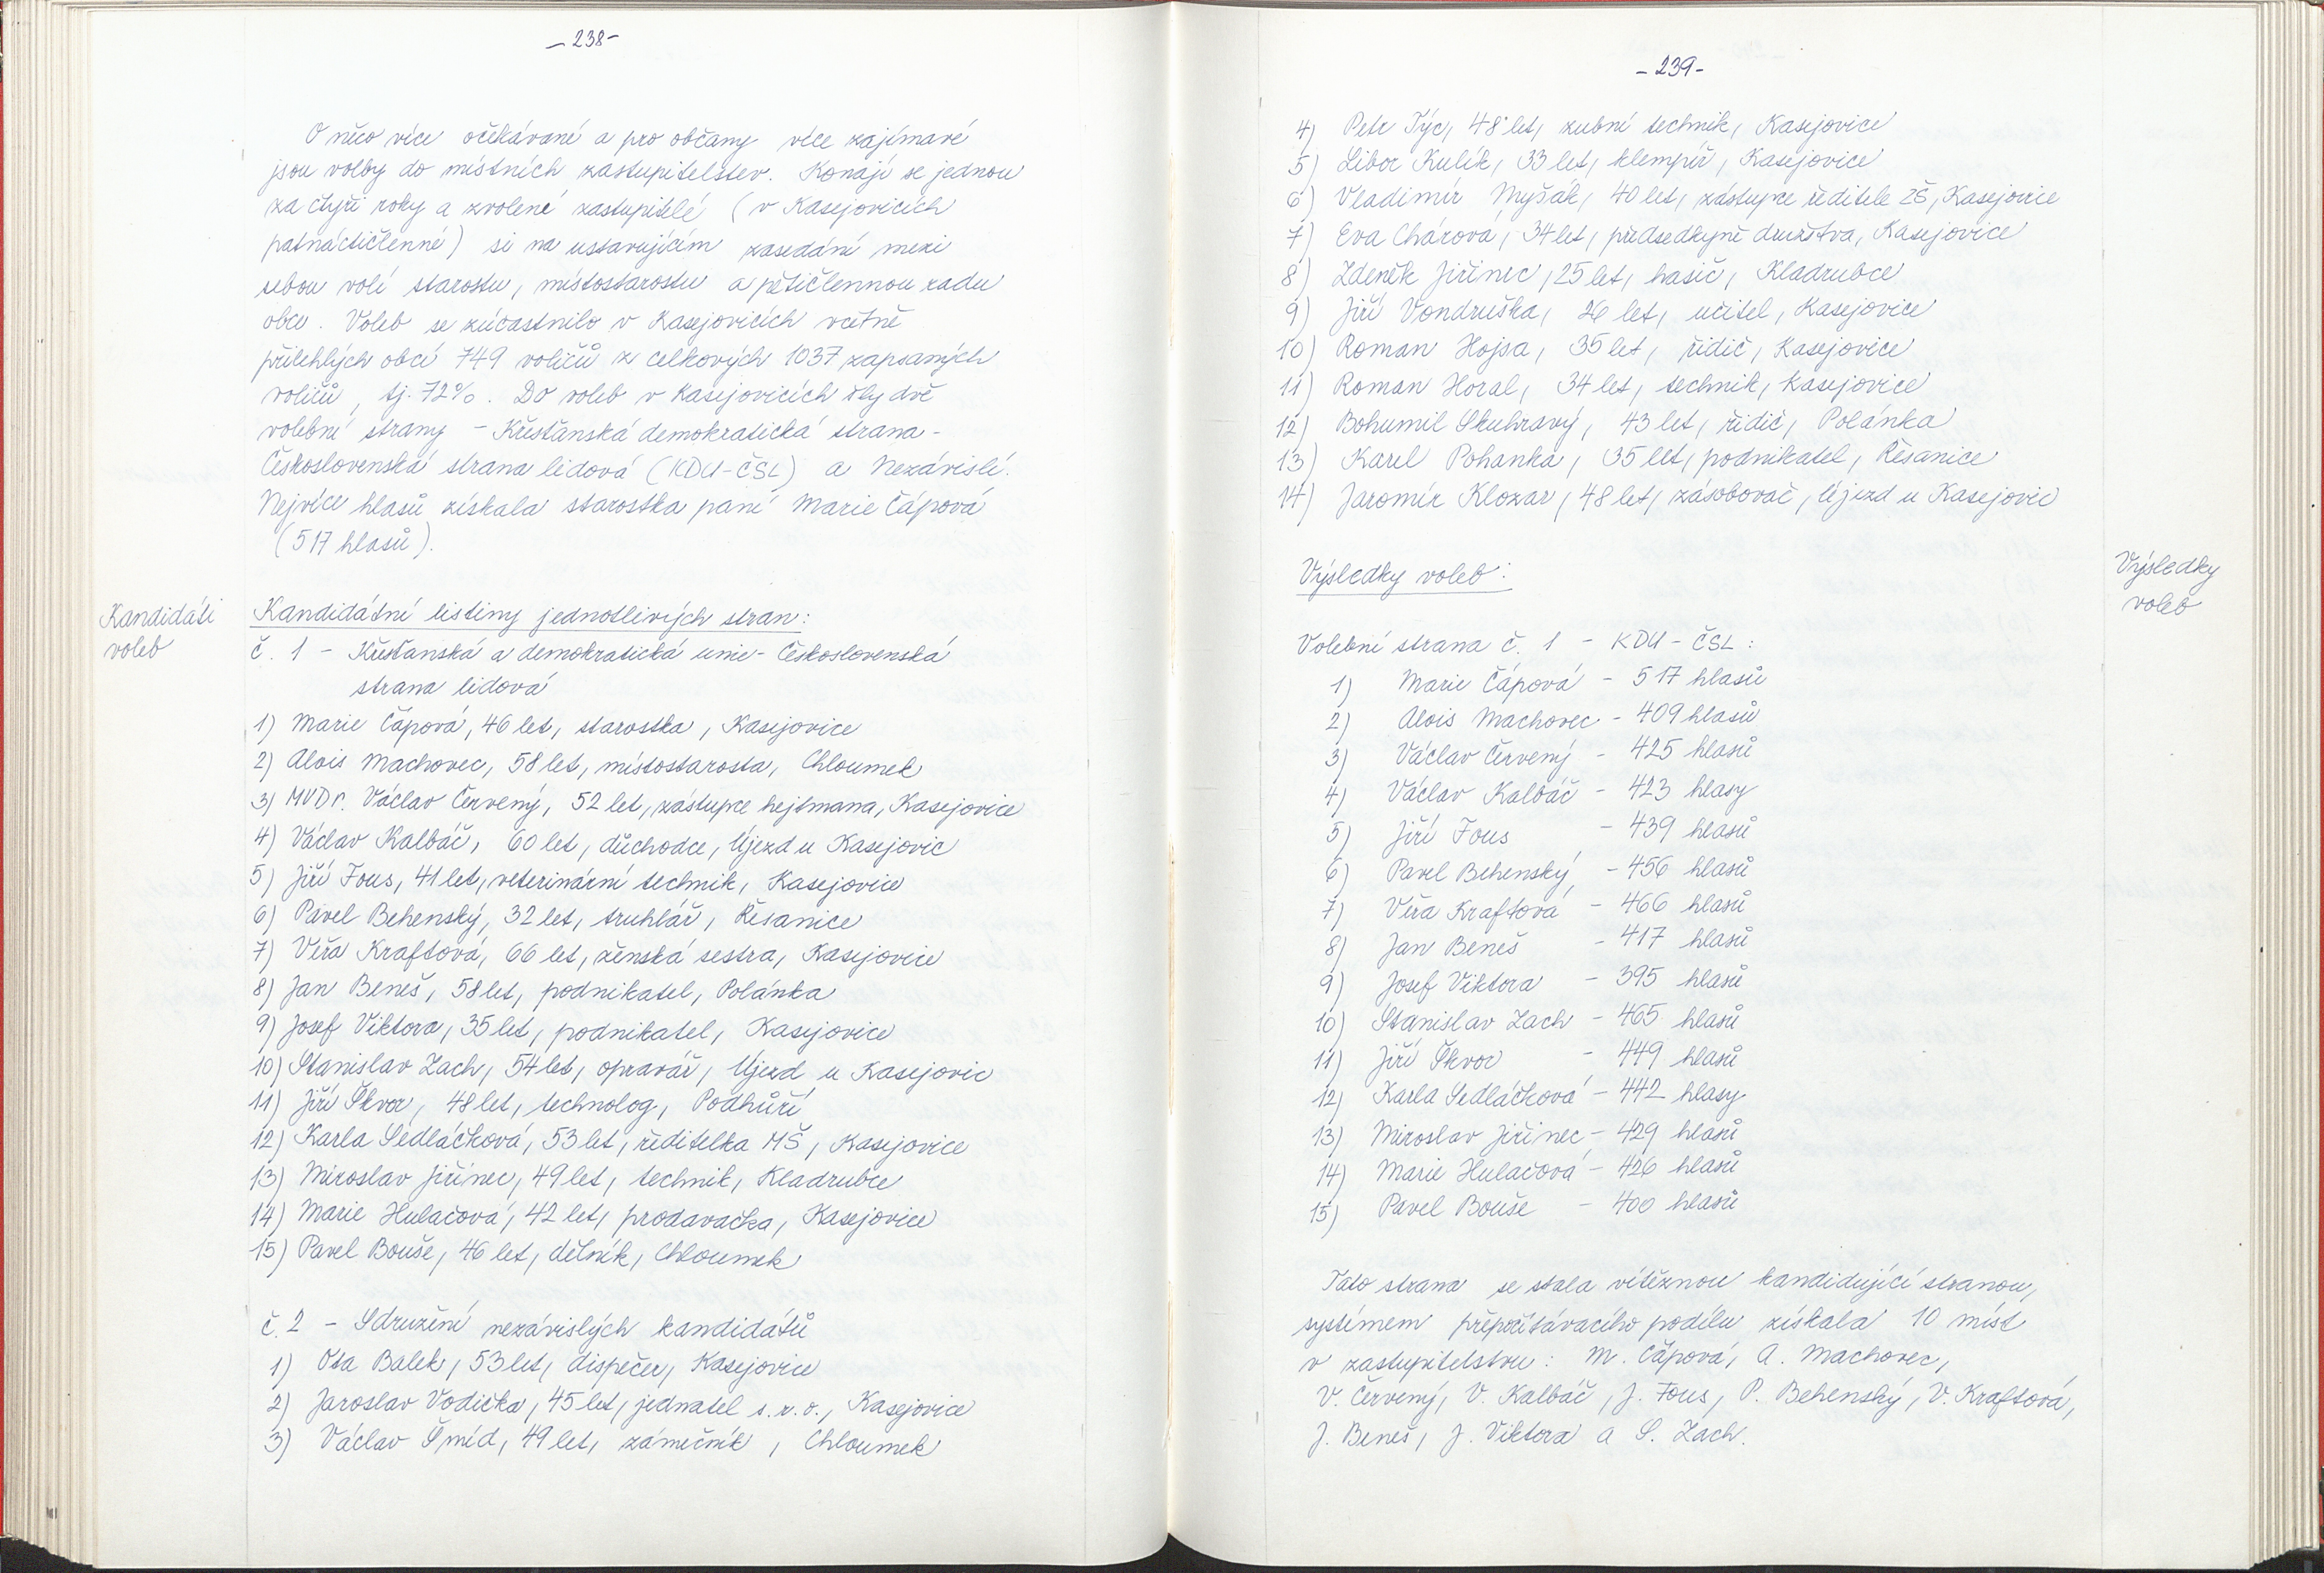 – 238 –
O něco více očekávané a pro občany více zajímavé
jsou volby do místních zastupitelstev. Konají se jednou
za čtyři roky a zvolené zastupitelé (v Kasejovicích
patnáctičlenné) si na ustavujícím zasedání mezi
sebou volí starostu, místostarostu a pětičlennou radu
obce. Voleb se zúčastnilo v Kasejovicích včetně
přilehlých obcí 749 voličů z celkových 1037 zapsaných
voličů, tj. 72%. Do voleb v Kasejovicích šly dvě
volební strany – Křesťanská demokratická strana –
Československá strana lidová (KDU-ČSL) a Nezávislí.
Nejvíce hlasů získala starostka paní Marie Čápová
(517 hlasů).
Kandidáti
voleb
Kandidátní listiny jednotlivých stran:
č. 1 – Křesťanská a demokratická unie - Československá
strana lidová
1) Marie Čápová, 46 let, starostka, Kasejovice
2) Alois Machovec, 58 let, místostarosta, Chloumek
3) MVDr. Václav Červený, 52 let, zástupce hejtmana, Kasejovice
4) Václav Kalbáč, 60 let, důchodce, Újezd u Kasejovic
5) Jiří Fous, 41 let, veterinární technik, Kasejovice
6) Pavel Behenský, 32 let, truhlář, Řesanice
7) Věra Kraftová, 66 let, ženská sestra, Kasejovice
8) Jan Beneš, 58 let, podnikatel, Polánka
9) Josef Viktora, 35 let, podnikatel, Kasejovice
10) Stanislav Zach, 54 let, opravář, Újezd u Kasejovic
11) Jiří Škvor, 48 let, technolog, Podhůří
12) Karla Sedláčková, 53 let, ředitelka MŠ, Kasejovice
13) Miroslav Jiřinec, 49 let, technik, Kladrubce
14) Marie Hulačová, 42 let, prodavačka, Kasejovice
15) Pavel Bouše, 46 let, dělník, Chloumek
č. 2 – Sdružení nezávislých kandidátů
1) Ota Balek, 53 let, dispečer, Kasejovice
2) Jaroslav Vodička, 45 let, jednatel s.r.o., Kasejovice
3) Václav Šmíd, 49 let, zámečník, Chloumek
– 239 –
4) Petr Týc, 48 let, zubní technik, Kasejovice
5) Libor Kulík, 33 let, klempíř, Kasejovice
6) Vladimír Myšák, 40 let, zástupce ředitele ZŠ, Kasejovice
7) Eva Chárová, 34 let, předsedkyně družstva, Kasejovice
8) Zdeněk Jiřinec, 25 let, hasič, Kladrubce
9) Jiří Vondruška, 26 let, učitel, Kasejovice
10) Roman Hojsa, 35 let, řidič, Kasejovice
11) Roman Horal, 34 let, technik, Kasejovice
12) Bohumil Skuhravý, 43 let, řidič, Polánka
13) Karel Pohanka, 35 let, podnikatel, Řesanice
14) Jaromír Klozar, 48 let, zásobovač, Újezd u Kasejovic
Výsledky voleb:
Výsledky
voleb
Volební strana č. 1 – KDU-ČSL:
1) Marie Čápová – 517 hlasů
2) Alois Machovec – 409 hlasů
3) Václav Červený – 425 hlasů
4) Václav Kalbáč – 423 hlasy
5) Jiří Fous – 439 hlasů
6) Pavel Behenský – 456 hlasů
7) Věra Kraftová – 466 hlasů
8) Jan Beneš – 417 hlasů
9) Josef Viktora – 395 hlasů
10) Stanislav Zach – 465 hlasů
11) Jiří Škvor – 449 hlasů
12) Karla Sedláčková – 442 hlasy
13) Miroslav Jiřinec – 429 hlasů
14) Marie Hulačová – 426 hlasů
15) Pavel Bouše – 400 hlasů
Tato strana se stala vítěznou kandidující stranou,
systémem přepočítávacího podílu získala 10 míst
v zastupitelstvu: M. Čápová, A. Machovec,
V. Červený, V. Kalbáč, J. Fous, P. Behenský, V. Kraftová,
J. Beneš, J. Viktora a S. Zach.